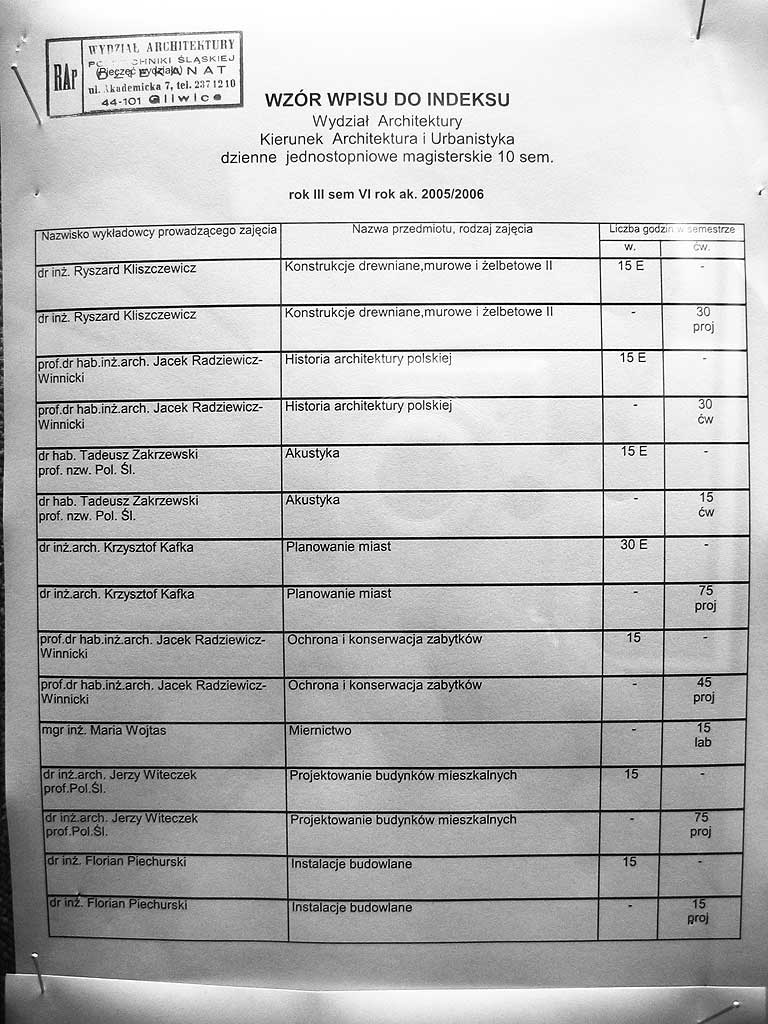 WYDZIAŁ ARCHITEKTURY
ŚLĄSKIEJ
RAr
(Pieczęć wydziału)
DZIEKANAT
ul. Akademicka 7, tel. 237 12 10
44-101 Gliwice
WZÓR WPISU DO INDEKSU
Wydział Architektury
Kierunek Architektura i Urbanistyka
dzienne jednostopniowe magisterskie 10 sem.
rok III sem VI rok ak. 2005/2006
Nazwisko wykładowcy prowadzącego zajęcia Nazwa przedmiotu, rodzaj zajęcia Liczba godzin w semestrze
w. ćw.
dr inż. Ryszard Kliszczewicz Konstrukcje drewniane,murowe i żelbetowe II 15 E -
dr inż. Ryszard Kliszczewicz Konstrukcje drewniane,murowe i żelbetowe II - 30
proj
prof.dr hab.inż.arch. Jacek Radziewicz- Historia architektury polskiej 15 E -
Winnicki
prof.dr hab.inż.arch. Jacek Radziewicz- Historia architektury polskiej - 30
Winnicki ćw
dr hab. Tadeusz Zakrzewski Akustyka 15 E -
prof. nzw. Pol. Śl.
dr hab. Tadeusz Zakrzewski Akustyka - 15
prof. nzw. Pol. Śl. ćw
dr inż.arch. Krzysztof Kafka Planowanie miast 30 E -
dr inż.arch. Krzysztof Kafka Planowanie miast - 75
proj
prof.dr hab.inż.arch. Jacek Radziewicz- Ochrona i konserwacja zabytków 15 -
Winnicki
prof.dr hab.inż.arch. Jacek Radziewicz- Ochrona i konserwacja zabytków - 45
Winnicki proj
mgr inż. Maria Wojtas Miernictwo - 15
lab
dr inż.arch. Jerzy Witeczek Projektowanie budynków mieszkalnych 15 -
prof.Pol.Śl.
dr inż.arch. Jerzy Witeczek Projektowanie budynków mieszkalnych - 75
prof.Pol.Śl. proj
dr inż. Florian Piechurski Instalacje budowlane 15 -
dr inż. Florian Piechurski Instalacje budowlane - 15
proj